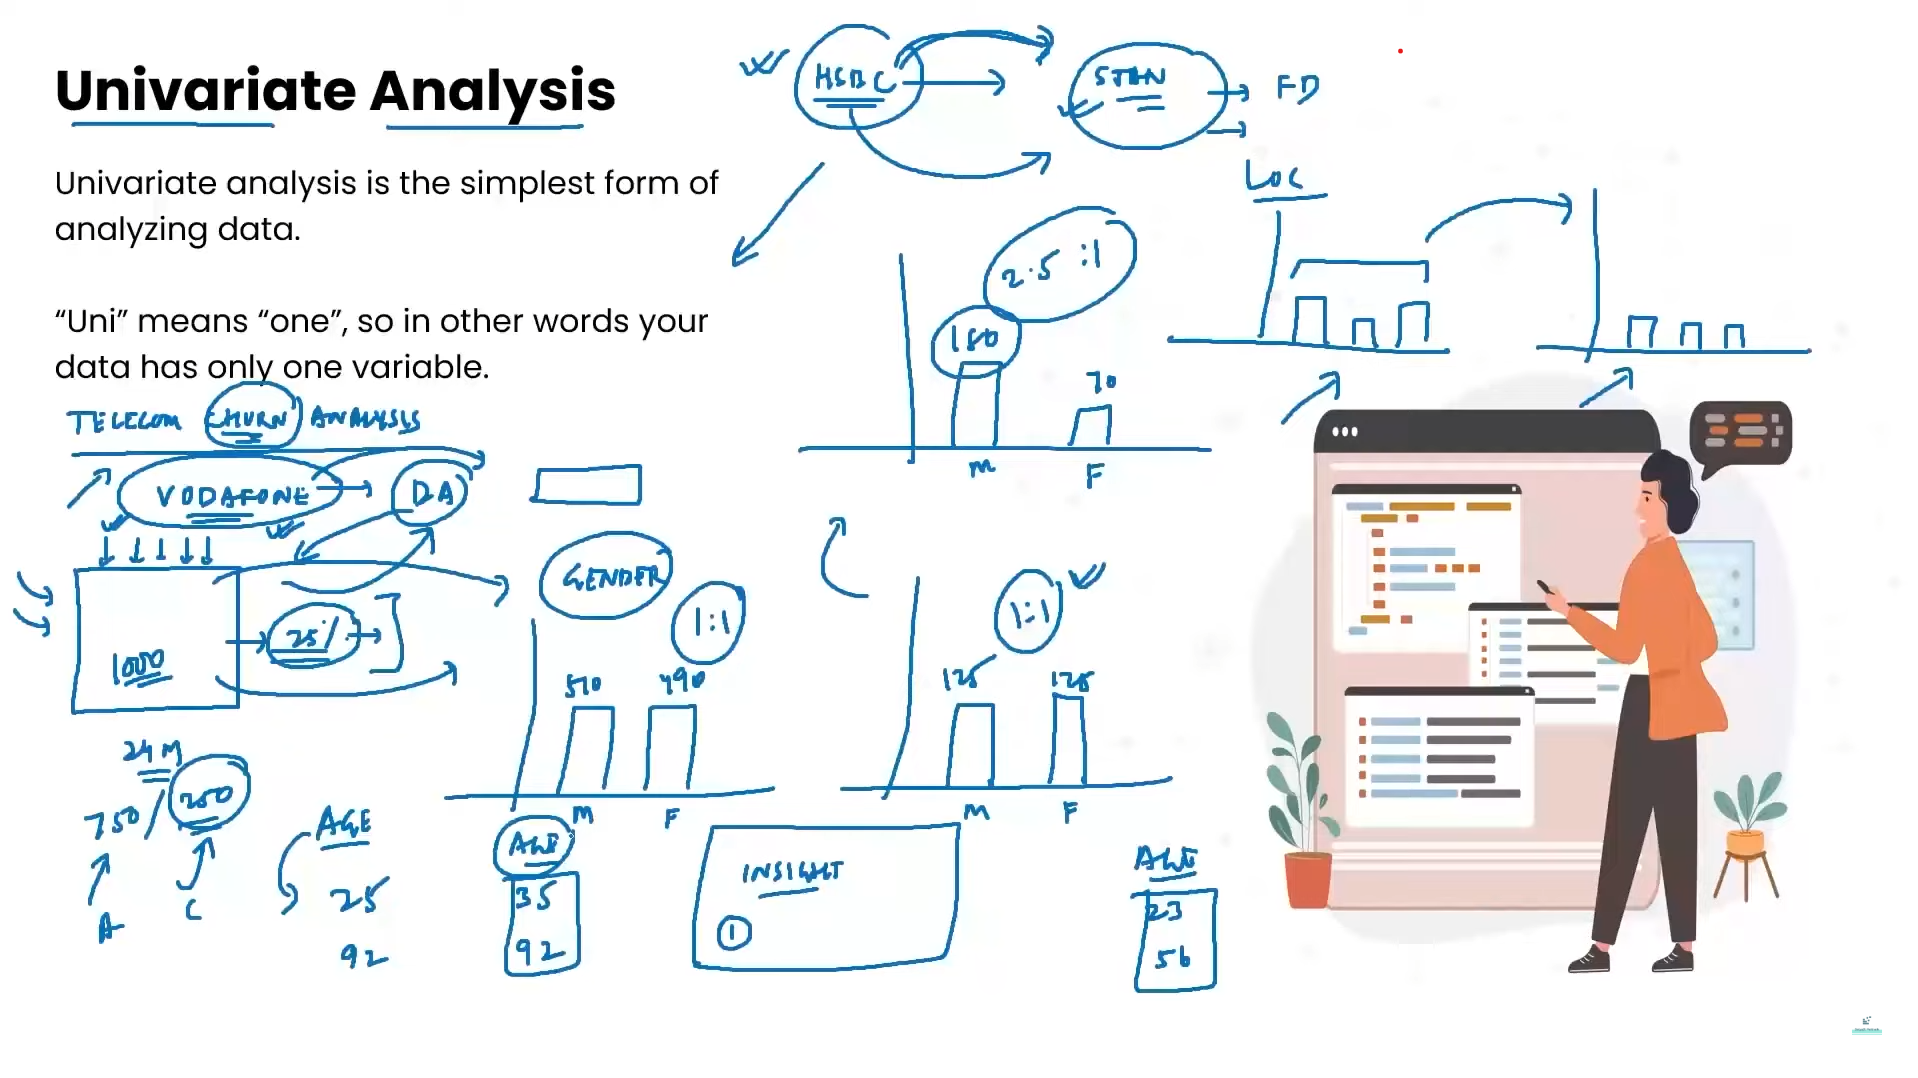 Univariate Analysis
Univariate analysis is the simplest form of
analyzing data.
“Uni” means “one”, so in other words your
data has only one variable.
HSBC
STAN
FD
LOC
2.5 :1
180
70
M
F
TELECOM CHURN ANALYSIS
VODAFONE
DA
GENDER
1:1
1:1
1000
25%
510
490
125
125
M
F
M
F
24 M
750/250
A
C
AGE
25
92
AGE
35
92
INSIGHT
1
AGE
23
56